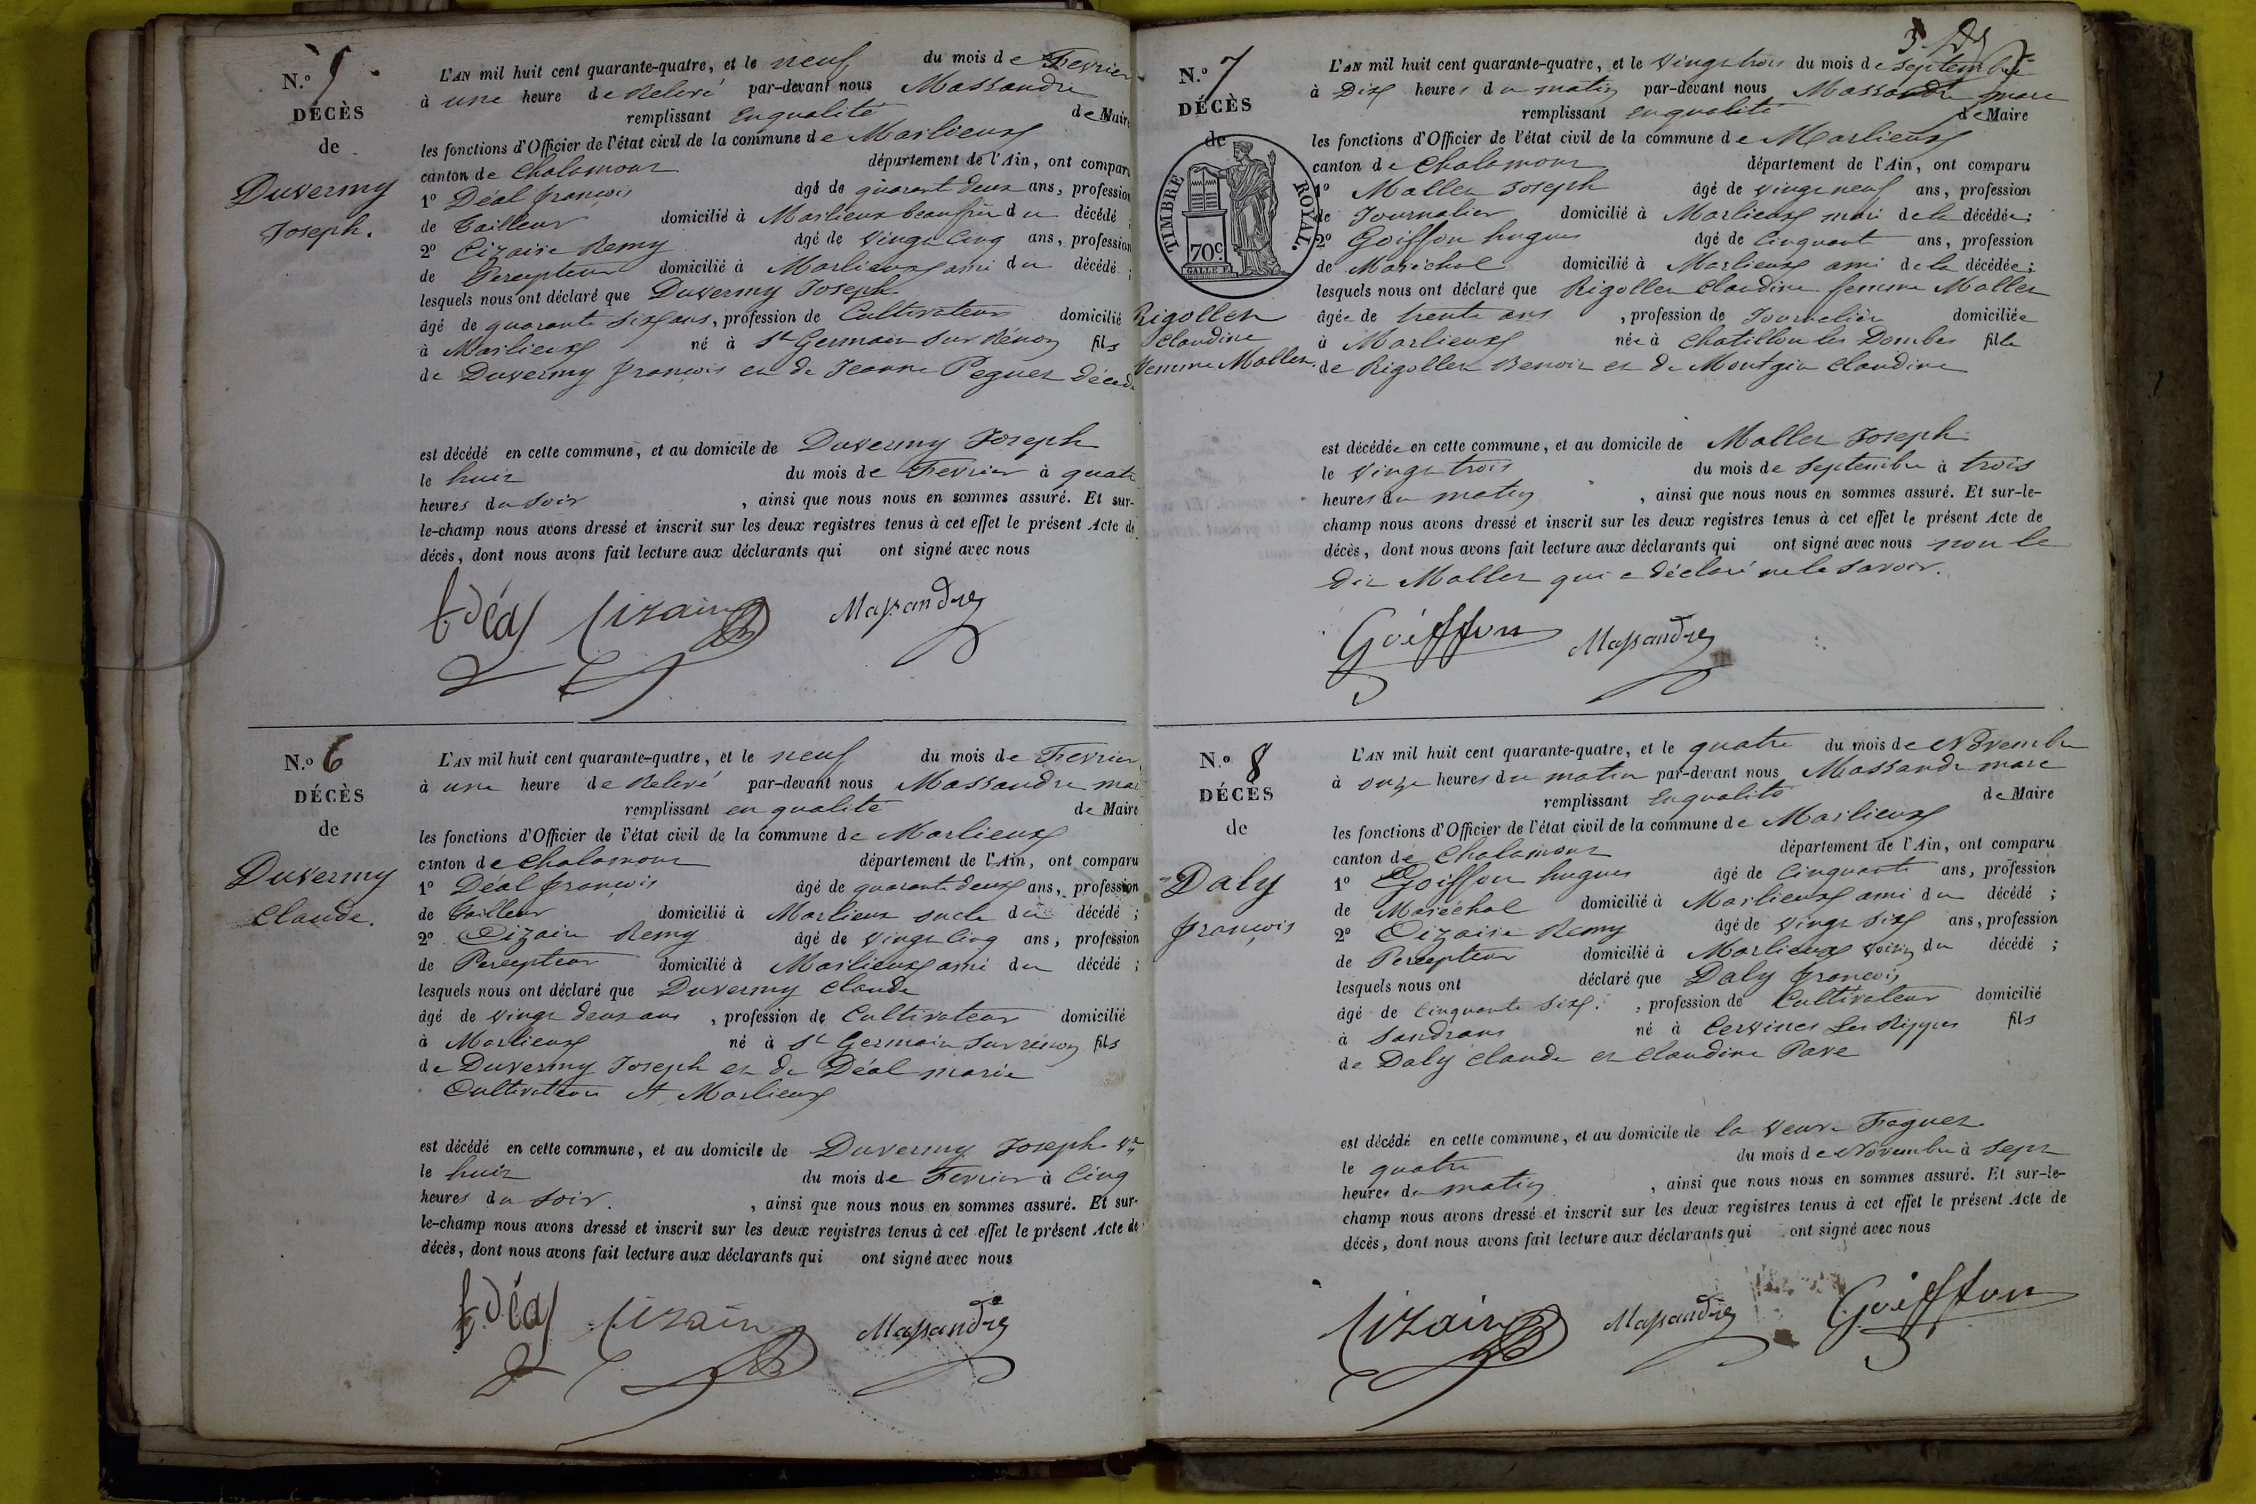 N.o 5
DÉCÈS
de
Duvermy
Joseph.
L'AN mil huit cent quarante-quatre, et le neuf du mois de Fevrier
à une heure de Relevé par-devant nous Massandre
remplissant En qualité de Maire
les fonctions d'Officier de l'état civil de la commune de Marlieux
canton de Chalamont département de l'Ain, ont comparu
1o Déal françois âgé de quarant deux ans, profession
de Tailleur domicilié à Marlieux beaufrère du décédé ;
2o Cizaire Remy âgé de vingt Cinq ans, profession
de Percepteur domicilié à Marlieux ami du décédé ;
lesquels nous ont déclaré que Duvermy Joseph
âgé de quarante Six ans, profession de Cultivateur domicilié
à Marlieux né à St Germain Sur Rénon fils
de Duvermy françois et de Jeanne Peguet décédé
est décédé en cette commune, et au domicile de Duvermy Joseph
le huit du mois de Fevrier à quatre
heures du Soir , ainsi que nous nous en sommes assuré. Et sur-
le-champ nous avons dressé et inscrit sur les deux registres tenus à cet effet le présent Acte de
décès, dont nous avons fait lecture aux déclarants qui ont signé avec nous
f Déal Cizaire Massandre
N.o 6
DÉCÈS
de
Duvermy
Claude.
L'AN mil huit cent quarante-quatre, et le neuf du mois de Fevrier
à une heure de Relevé par-devant nous Massandre
remplissant en qualité de Maire
les fonctions d'Officier de l'état civil de la commune de Marlieux
canton de Chalamont département de l'Ain, ont comparu
1o Déal françois âgé de quarante deux ans, profession
de Tailleur domicilié à Marlieux oncle du décédé ;
2o Cizaire Remy âgé de vingt Cinq ans, profession
de Percepteur domicilié à Marlieux ami du décédé ;
lesquels nous ont déclaré que Duvermy Claude
âgé de vingt deux ans , profession de Cultivateur domicilié
à Marlieux né à St Germain Sur rénon fils
de Duvermy Joseph et de Déal marie
Cultivateur A Marlieux
est décédé en cette commune, et au domicile de Duvermy Joseph
le huit du mois de Fevrier à Cinq
heures du Soir. , ainsi que nous nous en sommes assuré. Et sur-
le-champ nous avons dressé et inscrit sur les deux registres tenus à cet effet le présent Acte de
décès, dont nous avons fait lecture aux déclarants qui ont signé avec nous
f Déal Cizaire Massandre
N.o 7
DÉCÈS
de
TIMBRE ROYAL.
70c
Rigollet
Claudine
femme Mallet.
L'AN mil huit cent quarante-quatre, et le Vingt trois du mois de septembre
à Dix heures du matin par-devant nous Massandre marc
remplissant En qualité de Maire
les fonctions d'Officier de l'état civil de la commune de Marlieux
canton de Chalamont département de l'Ain, ont comparu
1o Mallet Joseph âgé de vingt neuf ans, profession
de Journalier domicilié à Marlieux mari de la décédée;
2o Goiffon hugues âgé de Cinquante ans, profession
de Maréchal domicilié à Marlieux ami de la décédée;
lesquels nous ont déclaré que Rigollet Claudine femme Mallet
âgée de trente ans , profession de Journalière domiciliée
à Marlieux née à Chatillon les Dombes fille
de Rigollet Benoit et de Montgin Claudine
est décédée en cette commune, et au domicile de Mallet Joseph
le Vingt trois du mois de septembre à trois
heures du matin , ainsi que nous nous en sommes assuré. Et sur-le-
champ nous avons dressé et inscrit sur les deux registres tenus à cet effet le présent Acte de
décès, dont nous avons fait lecture aux déclarants qui ont signé avec nous non le
dit Mallet qui a déclaré ne le Savoir.
Goiffon Massandre
N.o 8
DÉCÈS
de
Daly
françois
L'AN mil huit cent quarante-quatre, et le quatre du mois de Novembre
à onze heures du matin par-devant nous Massandre marc
remplissant En qualité de Maire
les fonctions d'Officier de l'état civil de la commune de Marlieux
canton de Chalamont département de l'Ain, ont comparu
1o Goiffon hugues âgé de Cinquante ans, profession
de Maréchal domicilié à Marlieux ami du décédé ;
2o Cizaire Remy âgé de vingt Six ans, profession
de Percepteur domicilié à Marlieux voisin du décédé ;
lesquels nous ont déclaré que Daly françois
âgé de Cinquante Six , profession de Cultivateur domicilié
à Sandrans né à fils
de Daly Claude et Claudine Pave
est décédé en cette commune, et au domicile de la Veuve
le quatre du mois de Novembre à Sept
heures du matin , ainsi que nous nous en sommes assuré. Et sur-le-
champ nous avons dressé et inscrit sur les deux registres tenus à cet effet le présent Acte de
décès, dont nous avons fait lecture aux déclarants qui ont signé avec nous
Cizaire Massandre Goiffon